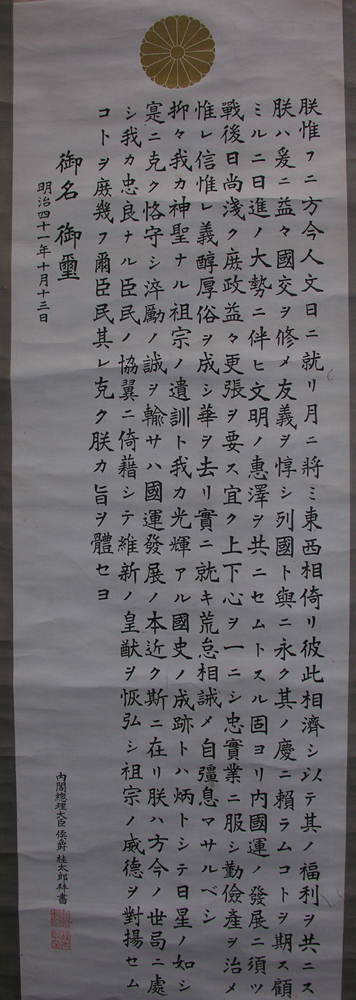 朕惟フニ方今人文日ニ就リ月ニ將ミ東西相倚リ彼此相濟シ以テ其ノ福利ヲ共ニス
朕ハ爰ニ益々國交ヲ修メ友義ヲ惇シ列國ト與ニ永ク其ノ慶ニ賴ラムコトヲ期ス顧
ミルニ日進ノ大勢ニ伴ヒ文明ノ惠澤ヲ共ニセムトスル固ヨリ内國運ノ發展ニ須ツ
戰後日尚淺ク庶政益々更張ヲ要ス宜ク上下心ヲ一ニシ忠實業ニ服シ勤儉産ヲ治メ
惟レ信惟レ義醇厚俗ヲ成シ華ヲ去リ實ニ就キ荒怠相誡メ自彊息マサルベシ
抑々我カ神聖ナル祖宗ノ遺訓ト我カ光輝アル國史ノ成跡トハ炳トシテ日星ノ如シ
寔ニ克ク恪守シ淬勵ノ誠ヲ輸サハ國運發展ノ本近ク斯ニ在リ朕ハ方今ノ世局ニ處
シ我カ忠良ナル臣民ノ協翼ニ倚藉シテ維新ノ皇猷ヲ恢弘シ祖宗ノ威德ヲ對揚セム
コトヲ庶幾フ爾臣民其レ克ク朕カ旨ヲ體セヨ
御名 御璽
明治四十一年十月十三日
内閣總理大臣侯爵 桂太郎拜書